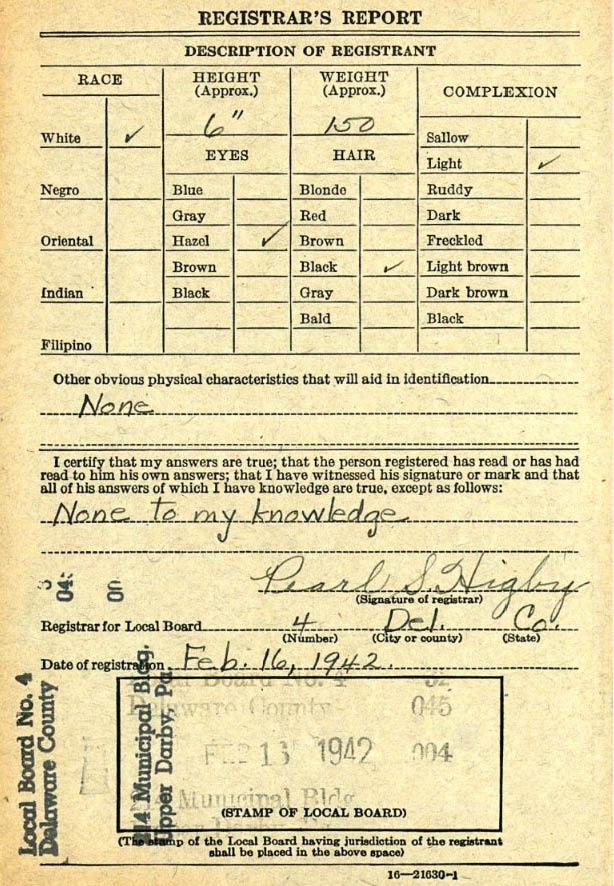 REGISTRAR'S REPORT
DESCRIPTION OF REGISTRANT
RACE
HEIGHT
(Approx.)
WEIGHT
(Approx.)
COMPLEXION
6"
150
White ✓
Sallow
EYES
HAIR
Light ✓
Negro
Blue
Blonde
Ruddy
Gray
Red
Dark
Oriental
Hazel ✓
Brown
Freckled
Brown
Black ✓
Light brown
Indian
Black
Gray
Dark brown
Bald
Black
Filipino
Other obvious physical characteristics that will aid in identification
None
I certify that my answers are true; that the person registered has read or has had
read to him his own answers; that I have witnessed his signature or mark and that
all of his answers of which I have knowledge are true, except as follows:
None to my knowledge
Pearl S. Higby
(Signature of registrar)
Registrar for Local Board 4 Del. Co.
(Number) (City or county) (State)
Date of registration Feb. 16, 1942.
Local Board No. 4
Delaware County
Municipal Bldg.
Upper Darby, Pa.
Board No. 4
Delaware County
045
1942 004
Municipal Bldg
(STAMP OF LOCAL BOARD)
(The stamp of the Local Board having jurisdiction of the registrant
shall be placed in the above space)
16—21630-1